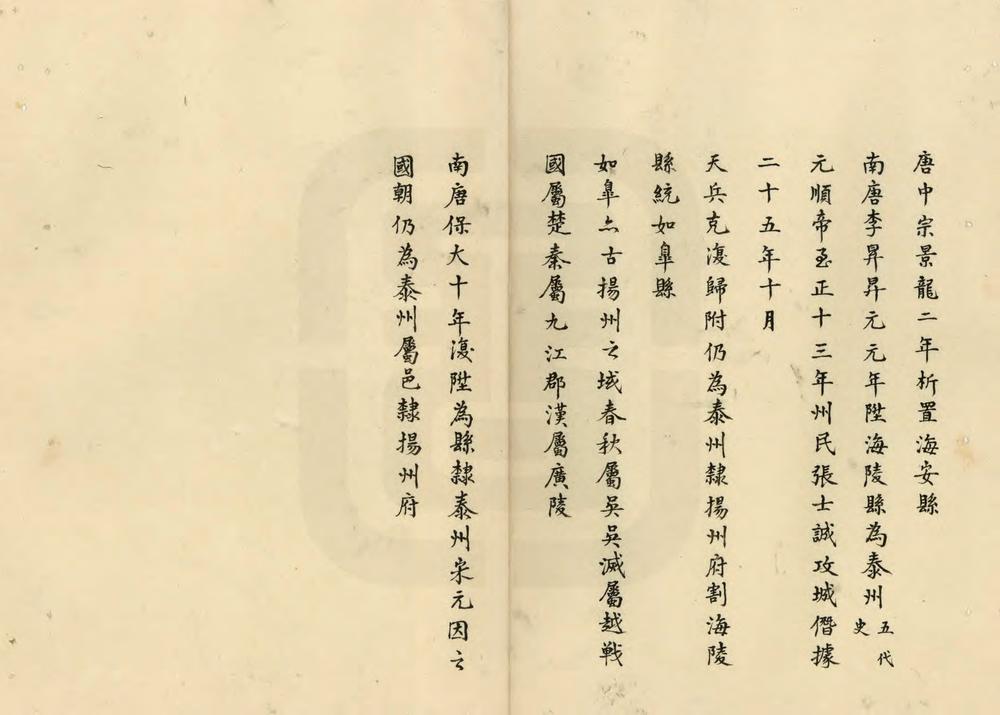 唐中宗景龍二年析置海安縣
南唐李昇昇元元年陞海陵縣為泰州五代史
元順帝至正十三年州民張士誠攻城僭據
二十五年十月
天兵克復歸附仍為泰州隸揚州府割海陵
縣統如臯縣
如臯亦古揚州之域春秋屬吳吳滅屬越戰
國屬楚秦屬九江郡漢屬廣陵
南唐保大十年復陞為縣隸泰州宋元因之
國朝仍為泰州屬邑隸揚州府